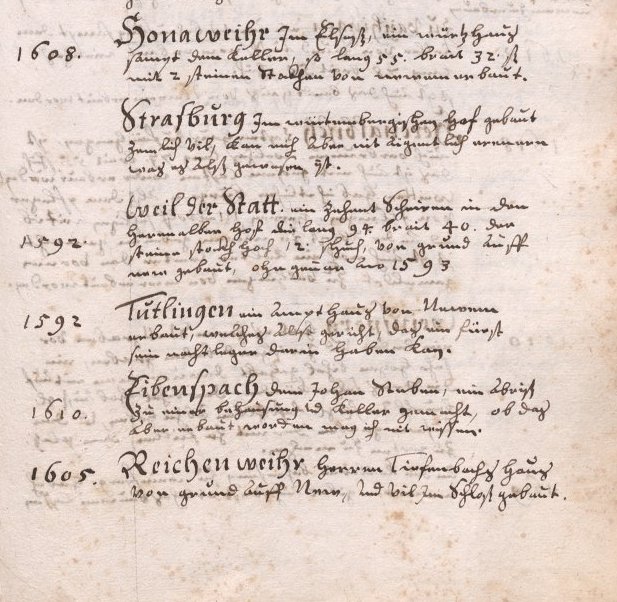 Honaweihr Jm Elsas, ein würtz Hauß
1608. sampt dem Keller, so lang 55. breit 32. ß
mit 2 steinen Stökhen von newem erbaut.
Strasburg Jm würtembergischen Hof gebaut
zimlich vil, kan mich aber nit aigentlich
was es alß gewesen ist.
Weil der Statt. ein Zehent Scheiren in den
1592. hof die lang 94. breit 40. der
steine stockh hoch 12. schuch, von grund auff
new gebaut, 1593
Tutlingen ein Ampt Hauß von Newem
1592 erbaut, welches alß gericht, das ein fürst
sein nacht leger darin haben kan.
Eibenspach dem Johan ein Abriß
1610. zu einer behausung vnd Keller gemacht, ob das
aber erbaut worden mag ich nit wissen.
1605. Reichenweihr Herren Hauß
von grund auff New, vnd vil Jm Schloß gebaut.